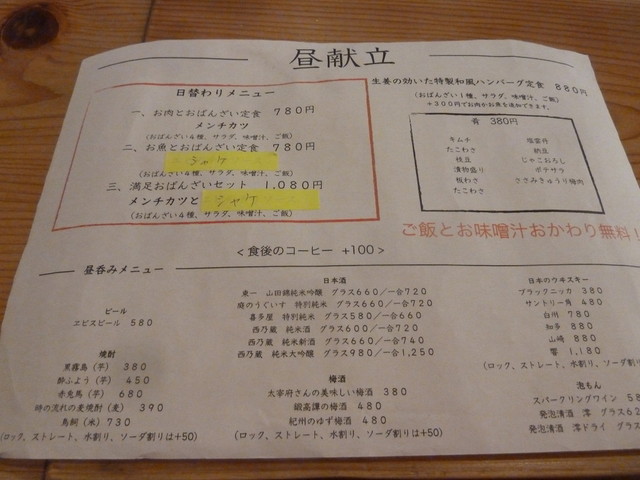 昼献立
日替わりメニュー
一、お肉とおばんざい定食 780円
メンチカツ
(おばんざい4種、サラダ、味噌汁、ご飯)
二、お魚とおばんざい定食 780円
シャケ
(おばんざい4種、サラダ、味噌汁、ご飯)
三、満足おばんざいセット 1,080円
メンチカツと シャケ
(おばんざい4種、サラダ、味噌汁、ご飯)
生姜の効いた特製和風ハンバーグ定食 880円
(おばんざい1種、サラダ、味噌汁、ご飯)
+300円でお肉かお魚を追加できます。
肴 380円
キムチ 塩雲丹
たこわさ 納豆
枝豆 じゃこおろし
漬物盛り ポテサラ
板わさ ささみきゅうり梅肉
たこわさ
ご飯とお味噌汁おかわり無料!
<食後のコーヒー +100>
昼呑みメニュー
ビール
エビスビール 580
焼酎
黒霧島(芋) 380
酔ふよう(芋) 450
赤兎馬(芋) 680
時の流れの麦焼酎(麦) 390
鳥飼(米) 730
(ロック、ストレート、水割り、ソーダ割りは+50)
日本酒
東一 山田錦純米吟醸 グラス660/一合720
庭のうぐいす 特別純米 グラス660/一合720
喜多屋 特別純米 グラス580/一合660
西乃蔵 純米酒 グラス600/一合720
西乃蔵 純米新酒 グラス660/一合740
西乃蔵 純米大吟醸 グラス980/一合1,250
梅酒
太宰府さんの美味しい梅酒 380
鍛高譚の梅酒 480
紀州のゆず梅酒 480
(ロック、ストレート、水割り、ソーダ割りは+50)
日本のウヰスキー
ブラックニッカ 380
サントリー角 480
白州 780
知多 880
山崎 880
響 1,180
(ロック、ストレート、水割り、ソーダ割り
泡もん
スパークリングワイン 58
発泡清酒 澪 グラス62
発泡清酒 澪ドライ グラス